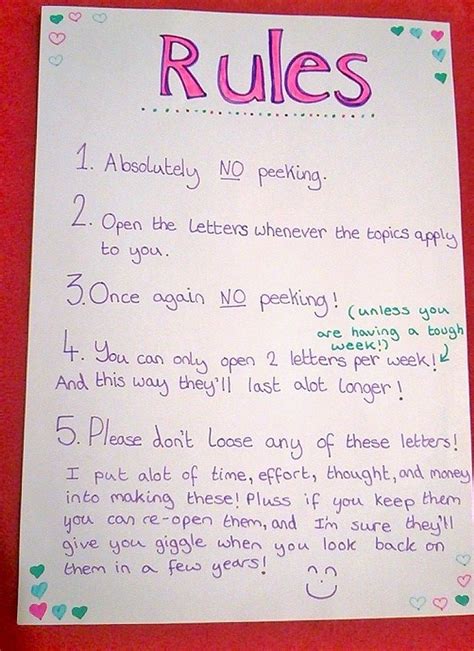 Rules
1. Absolutely NO peeking.
2. Open the letters whenever the topics apply
to you.
3. Once again NO peeking!
(unless you
are having a tough
week!)
4. You can only open 2 letters per week!
And this way they'll last alot longer!
5. Please don't loose any of these letters!
I put alot of time, effort, thought, and money
into making these! Pluss if you keep them
you can re-open them, and I'm sure they'll
give you giggle when you look back on
them in a few years!